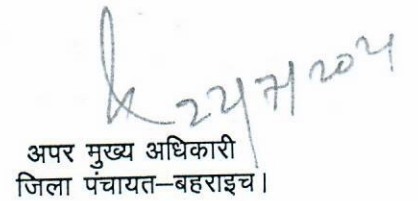 22/7/2024
अपर मुख्य अधिकारी
जिला पंचायत–बहराइच।